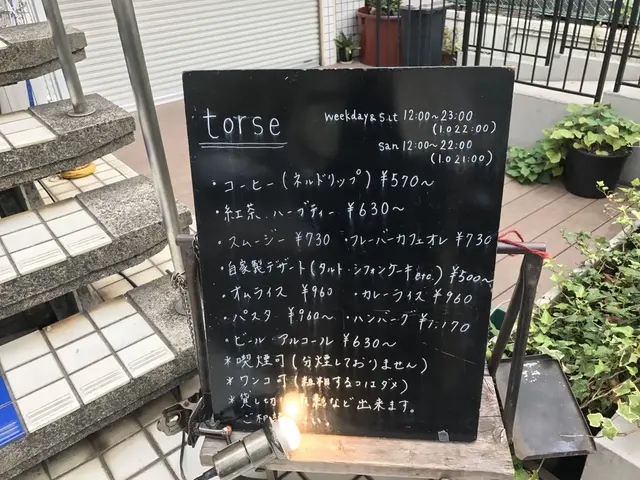 torse
weekday & Sat 12:00~23:00
(l.o 22:00)
san 12:00~22:00
(l.o 21:00)
・コーヒー(ネルドリップ) ¥570~
・紅茶 ハーブティー ¥630~
・スムージー ¥730 ・フレーバーカフェオレ ¥730
・自家製デザート(タルト・シフォンケーキ etc.) ¥500~
・オムライス ¥960 ・カレーライス ¥960
・パスタ ¥960~ ・ハンバーグ ¥1.170
・ビール アルコール ¥630~
*喫煙可(分煙しておりません)
*ワンコ可(粗相するコはダメ)
*貸し切 など出来ます。